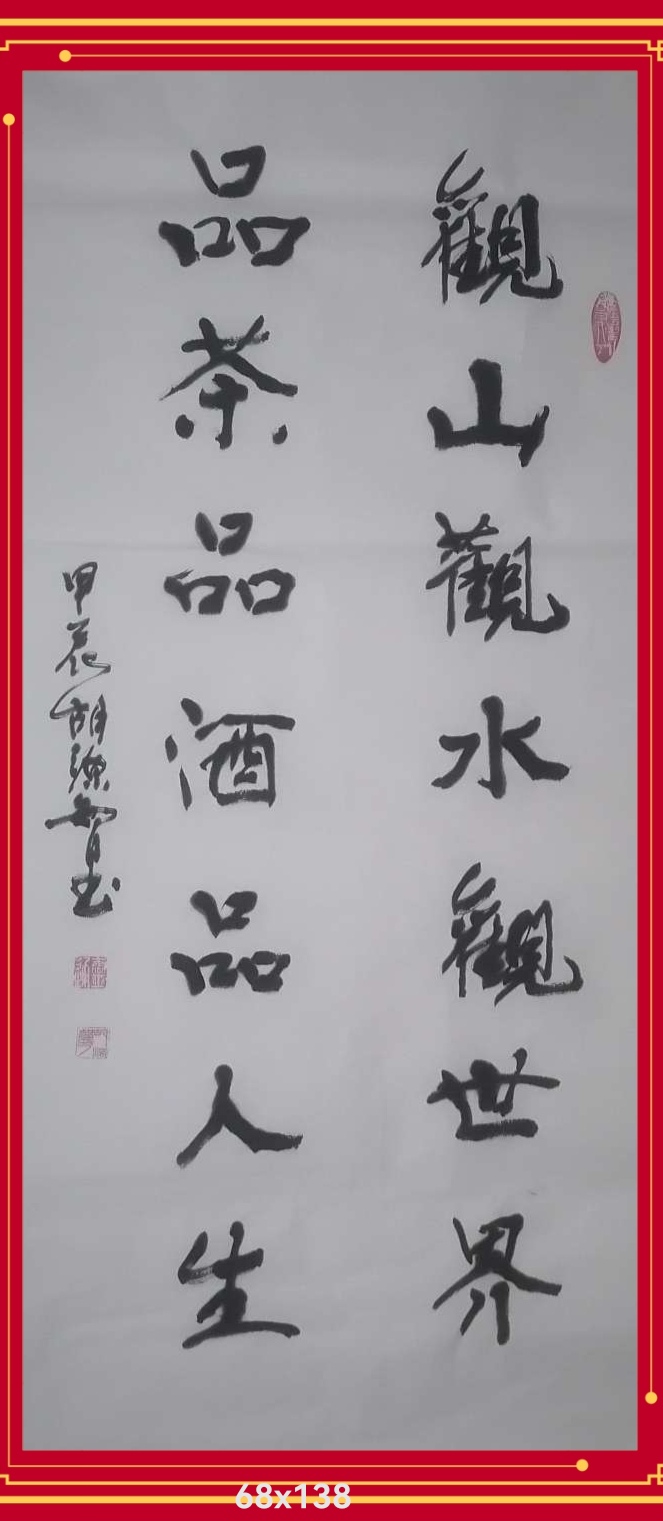 觀山觀水觀世界
品茶品酒品人生
甲辰胡
68x138